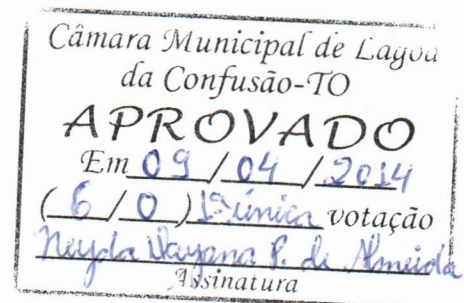 Câmara Municipal de Lagoa
da Confusão-TO
APROVADO
Em 09 / 04 / 2014
( 6 / 0 ) 1ª única votação
Neyda Dayana P. de Almeida
Assinatura